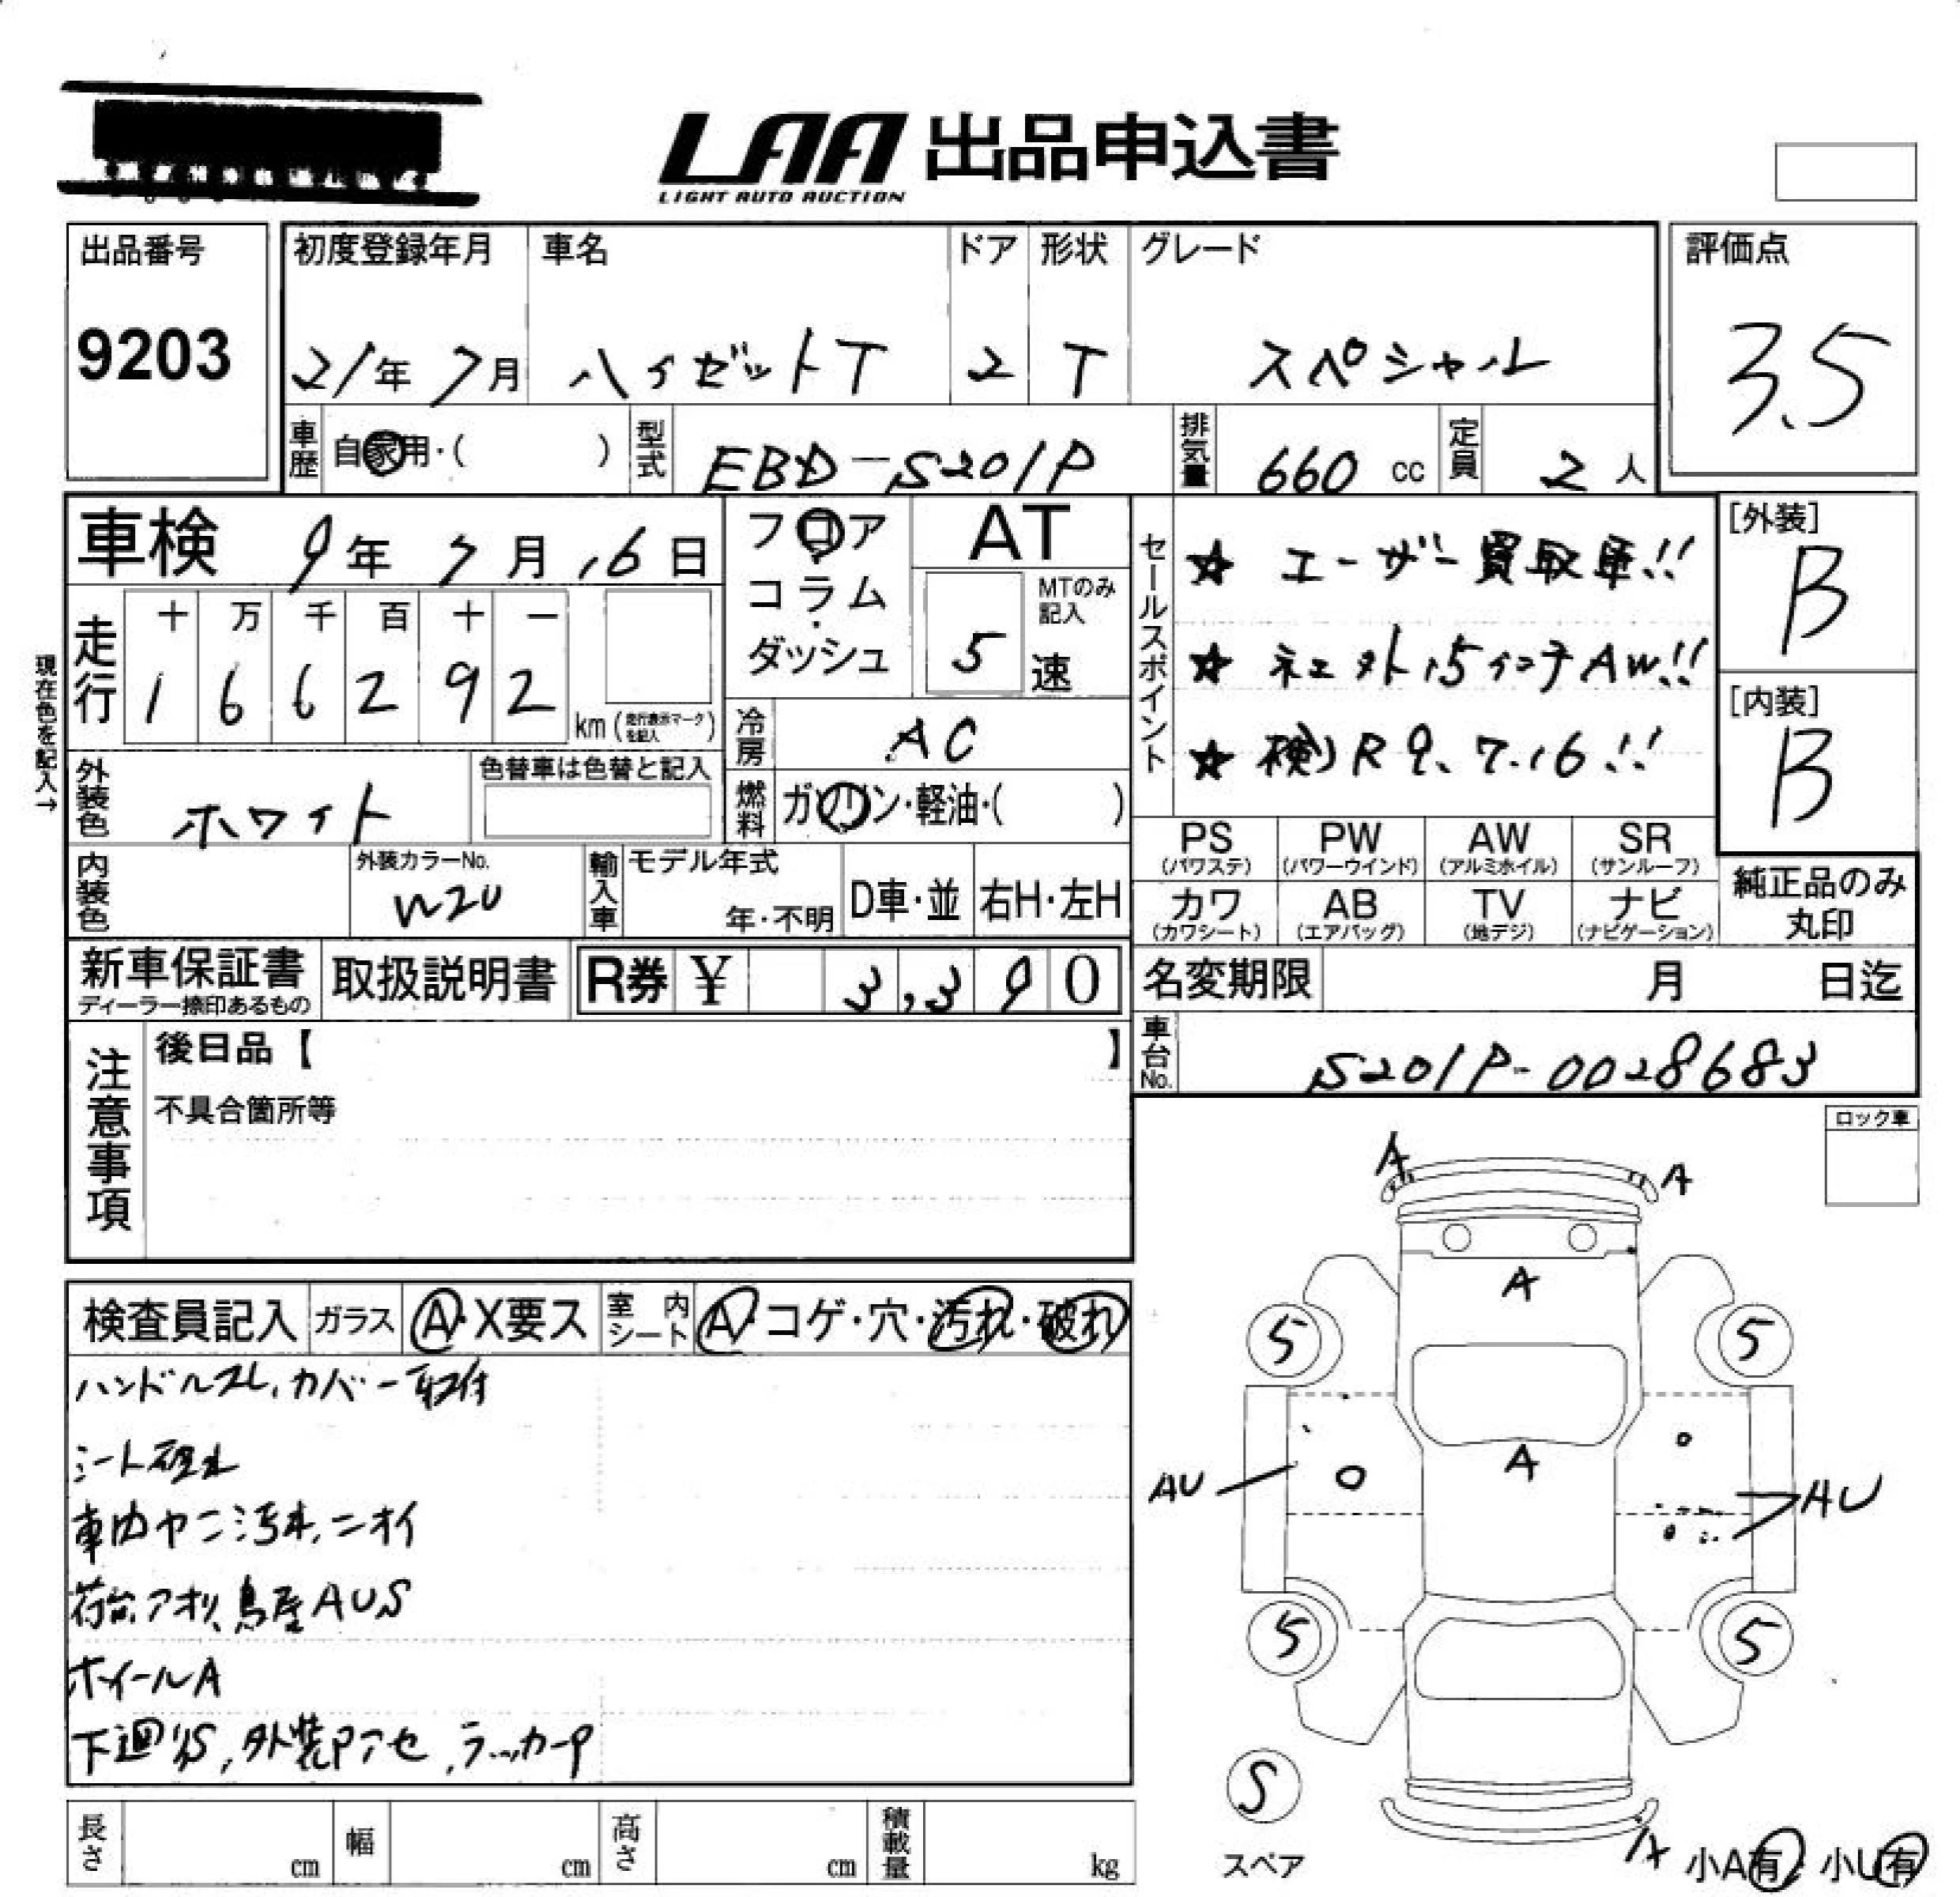 LAA 出品申込書
LIGHT AUTO AUCTION
出品番号
9203
初度登録年月
21年 7月
車名
ハイゼットT
ドア
2
形状
T
グレード
スペシャル
評価点
3.5
車歴
自家用・( )
型式
EBD-S201P
排気量
660 cc
定員
2 人
車検 9年 7月 16日
フロア
コラム
ダッシュ
AT
MTのみ記入
5 速
セールスポイント
☆ エーザー買取車!!
☆ ネエット15インチAW!!
☆ 検)R9.7.16!!
[外装]
B
[内装]
B
現在色を記入→
走行
十 万 千 百 十 一
1 6 6 2 9 2
km (走行表示マークを記入)
冷房
AC
外装色
ホワイト
色替車は色替と記入
燃料
ガソリン・軽油・( )
PS (パワステ)
PW (パワーウインド)
AW (アルミホイル)
SR (サンルーフ)
カワ (カワシート)
AB (エアバッグ)
TV (地デジ)
ナビ (ナビゲーション)
純正品のみ丸印
内装色
外装カラーNo.
W20
輸入車
モデル年式
年・不明
D車・並
右H・左H
新車保証書
ディーラー捺印あるもの
取扱説明書
R券 ¥ 3,390
名変期限 月 日迄
車台No.
S201P-0028683
注意事項
後日品【 】
不具合箇所等
ロック車
検査員記入
ガラス
A・X要ス
室内シート
A・コゲ・穴・汚れ・破れ
ハンドルスレ、カバー取付
シート破れ
車内ヤニ汚れ、ニオイ
荷台、アオリ、鳥居AUS
ホイールA
下廻りS, 外装Pアセ, ラッカーP
A
A
A
5
5
A
AU
AU
5
5
S
スペア
A
小A有・小U有
長さ cm
幅 cm
高さ cm
積載量 kg